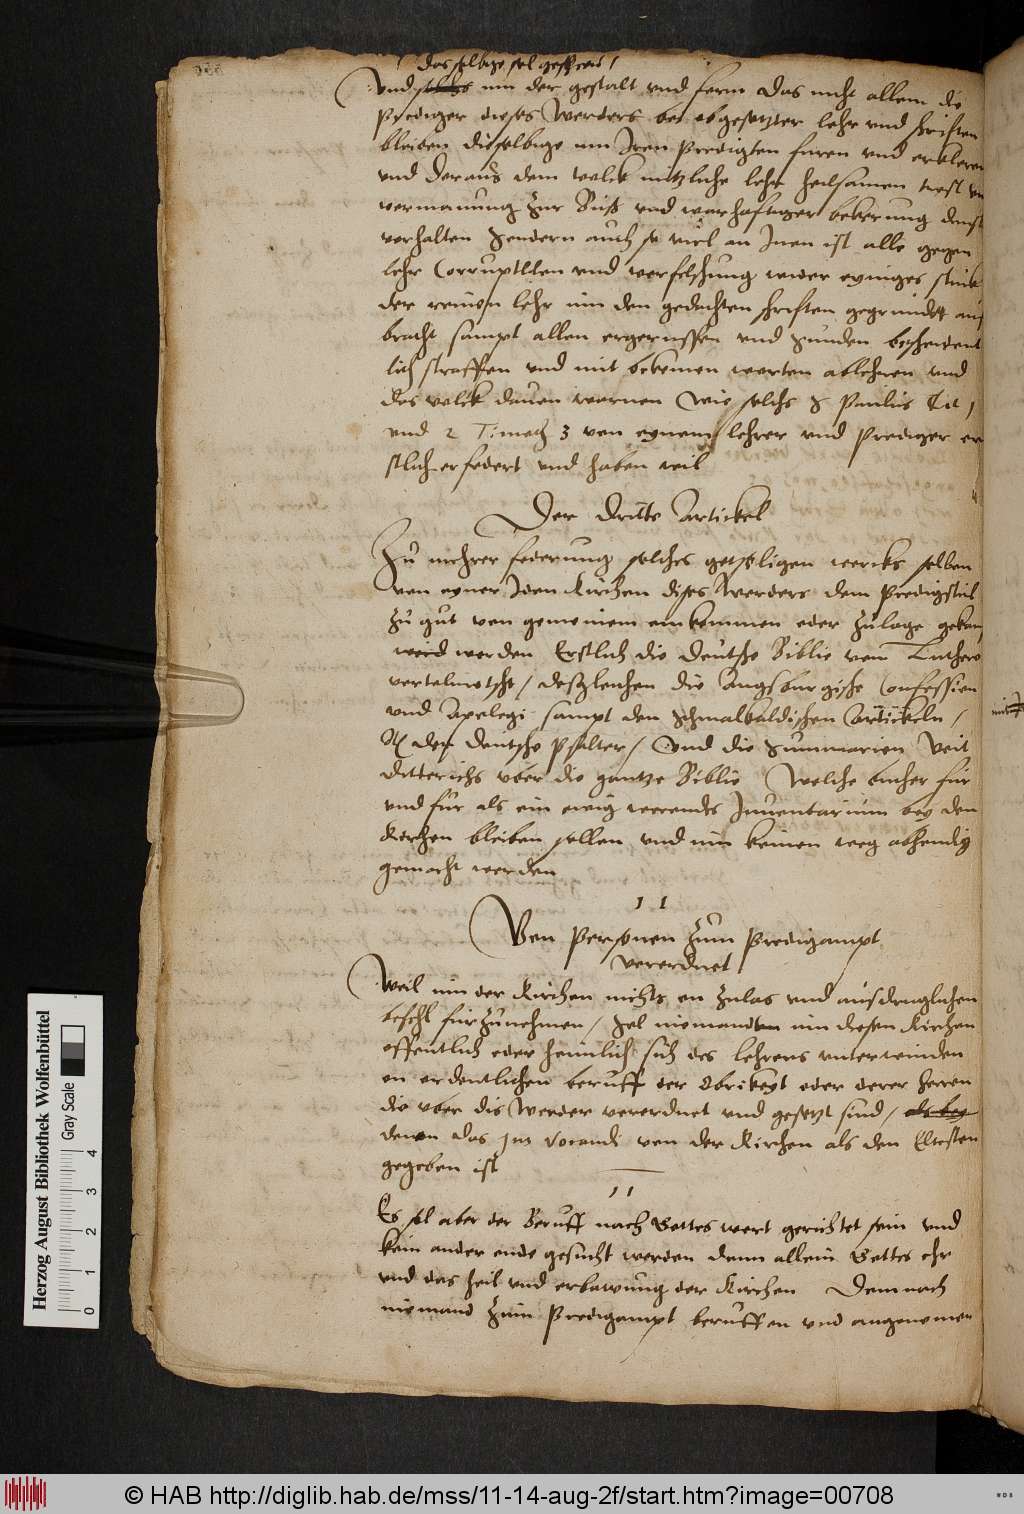 dasselbige sol geschen
Vnd solchs inn der gestalt vnd form das nicht allein die
Prediger dieses Werders bei obgesetzter lehr vnd schriften
bleiben dieselbige inn Iren Predigten furen vnd erkleren
vnd daraus dem volck nutzliche lehr heilsamen trost vnd
vermanung zur Buß vnd warhaftiger bekerung
vorhalten Sondern auch so viel an Inen ist alle gegen
lehr Corruptelen vnd verfelschung wider eyniges stuck
der reinen lehr inn den gedachten schriften gegrundet auf
bracht sampt allen ergernissen vnd Sunden bescheident
lich straffen vnd mit worten ablehnen vnd
das volck dauon warnen Wie solchs S Paulus Tit 1
vnd 2 Timoth 3 von eynem lehrer vnd Prediger er
stlich erfodert vnd haben wil
Der dritte Artickel
Zu mehrer foderung solches gotseligen wercks sollen
von eyner Iden Kirchen dises Werders dem Predigstul
zu gut von gemeinem einkommen oder Zulage gekau
werden Erstlich die deutsche Biblie vom Luthero
vertolmetscht / desgleichen die Augsburgische Confession
vnd Apologi sampt den Schmalkaldischen Artickeln /
der deutsche Psalter / Vnd die Summarien Veit
Ditterichs vber die gantze Biblie Welche bucher fur
vnd fur als ein ewig werends Inuentarium bey den
Kirchen bleiben sollen vnd inn keinen weg abhendig
gemacht werden
11
Von Personen zum Predigampt
verordnet
Weil inn der Kirchen nichts on Zulas vnd ausdruglichen
befehl furzunehmen / Sol niemandt inn diesen Kirchen
offentlich oder heimlich sich des lehrens vnterwinden
on ordentlichen beruff der Obrikeyt oder derer herren
die vber dis Werder verordnet vnd gesetzt sind / als bey
denen das Jus vocandi von der Kirchen als den Eltesten
gegeben ist
11
Es sol aber der Beruff nach Gottes wort gerichtet sein vnd
kein ander ende gesucht werden dann allein Gottes ehr
vnd das heil vnd erbawung der Kirchen Demnach
niemand zum Predigampt beruffen vnd angenomen
Herzog August Bibliothek Wolfenbüttel
Gray Scale
0 1 2 3 4
© HAB http://diglib.hab.de/mss/11-14-aug-2f/start.htm?image=00708